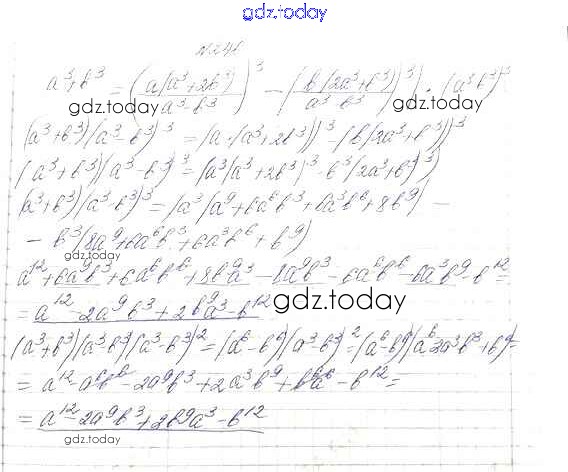 gdz.today
N246
a³+b³ = (a(a³+2b³)/(a³-b³))³ - (b(2a³+b³)/(a³-b³))³ · (a³-b³)³
gdz.today gdz.today
(a³+b³)(a³-b³)³ = (a·(a³+2b³))³ - (b(2a³+b³))³
(a³+b³)(a³-b³)³ = (a³(a³+2b³)³ - b³(2a³+b³)³)
(a³+b³)(a³-b³)³ = (a³(a⁹+6a⁶b³+12a³b⁶+8b⁹) -
- b³(8a⁹+6a⁶b³+6a³b⁶+b⁹)
gdz.today
a¹²+6a⁹b³+6a⁶b⁶+8b⁹a³-8a⁹b³-6a⁶b⁶-6a³b⁹-b¹² =
= a¹²-2a⁹b³+2b⁹a³-b¹²
gdz.today
(a³+b³)(a³-b³)(a³-b³)² = (a⁶-b⁶)(a³-b³)² = (a⁶-b⁶)(a⁶-2a³b³+b⁹) =
= a¹²-a⁶b⁶-2a⁹b³+2a³b⁹+b⁶a⁶-b¹² =
= a¹²-2a⁹b³+2b⁹a³-b¹²
gdz.today